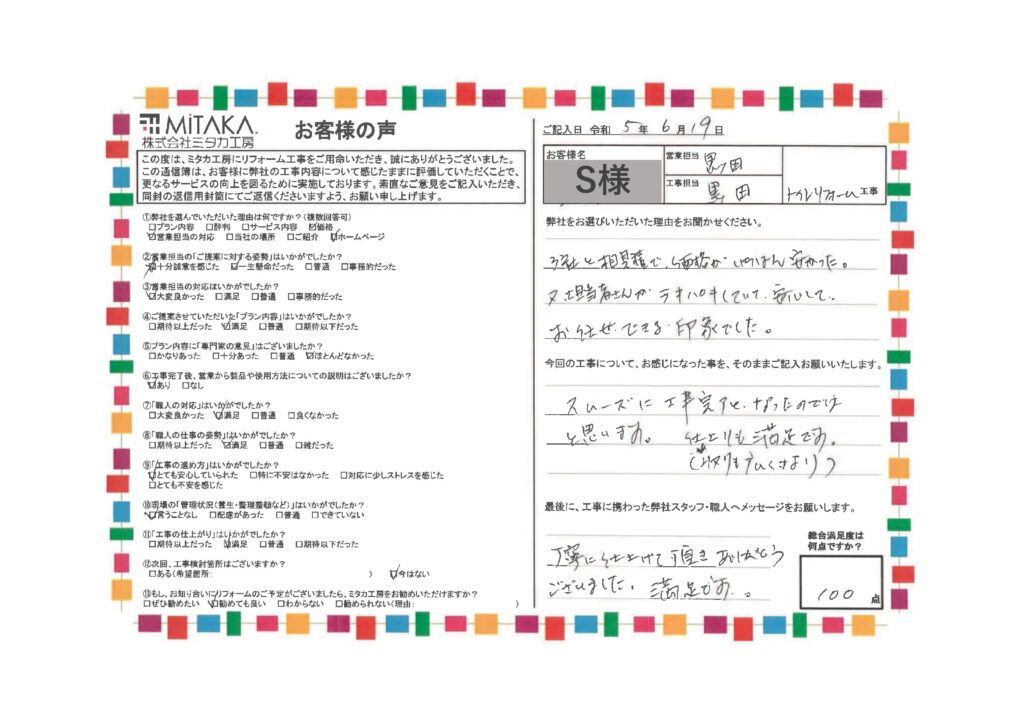 MiTAKA.
株式会社ミタカ工房
お客様の声
この度は、ミタカ工房にリフォーム工事をご用命いただき、誠にありがとうございました。
この通信簿は、お客様に弊社の工事内容について感じたままに評価していただくことで、
更なるサービスの向上を図るために実施しております。素直なご意見をご記入いただき、
同封の返信用封筒にてご返信くださいますよう、お願い申し上げます。
①弊社を選んでいただいた理由は何ですか?(複数回答可)
□プラン内容 □評判 □サービス内容 ☑価格
☑営業担当の対応 □当社の場所 □ご紹介 ☑ホームページ
②営業担当の「ご提案に対する姿勢」はいかがでしたか?
☑十分誠意を感じた ☑一生懸命だった □普通 □事務的だった
③営業担当の対応はいかがでしたか?
☑大変良かった □満足 □普通 □事務的だった
④ご提案させていただいた「プラン内容」はいかがでしたか?
□期待以上だった ☑満足 □普通 □期待以下だった
⑤プラン内容に「専門家の意見」はございましたか?
□かなりあった □十分あった □普通 ☑ほとんどなかった
⑥工事完了後、営業から製品や使用方法についての説明はございましたか?
☑あり □なし
⑦「職人の対応」はいかがでしたか?
□大変良かった ☑満足 □普通 □良くなかった
⑧「職人の仕事の姿勢」はいかがでしたか?
□期待以上だった ☑満足 □普通 □雑だった
⑨「工事の進め方」はいかがでしたか?
☑とても安心していられた □特に不安はなかった □対応に少しストレスを感じた
□とても不安を感じた
⑩現場の「管理状況(養生・整理整頓など)」はいかがでしたか?
☑言うことなし □配慮があった □普通 □できていない
⑪「工事の仕上がり」はいかがでしたか?
□期待以上だった ☑満足 □普通 □期待以下だった
⑫次回、工事検討箇所はございますか?
□ある(希望箇所: ) ☑今はない
⑬もし、お知り合いにリフォームのご予定がございましたら、ミタカ工房をお勧めいただけますか?
□ぜひ勧めたい ☑勧めても良い □わからない □勧められない(理由: )
ご記入日 令和 5 年 6 月 19 日
お客様名
S様
営業担当 黒田
工事担当 黒田
トイレリフォーム 工事
弊社をお選びいただいた理由をお聞かせください。
3社と相見積で、価格がいちばん安かった。
又、担当者さんがテキパキしていて、安心して、
お任せできる印象でした。
今回の工事について、お感じになった事を、そのままご記入お願いいたします。
スムーズに工事完了となったのでは
と思います。 仕上りも満足です。
最後に、工事に携わった弊社スタッフ・職人へメッセージをお願いします。
丁寧に仕上げて頂きありがとう
ございました。満足です。
総合満足度は
何点ですか?
100 点